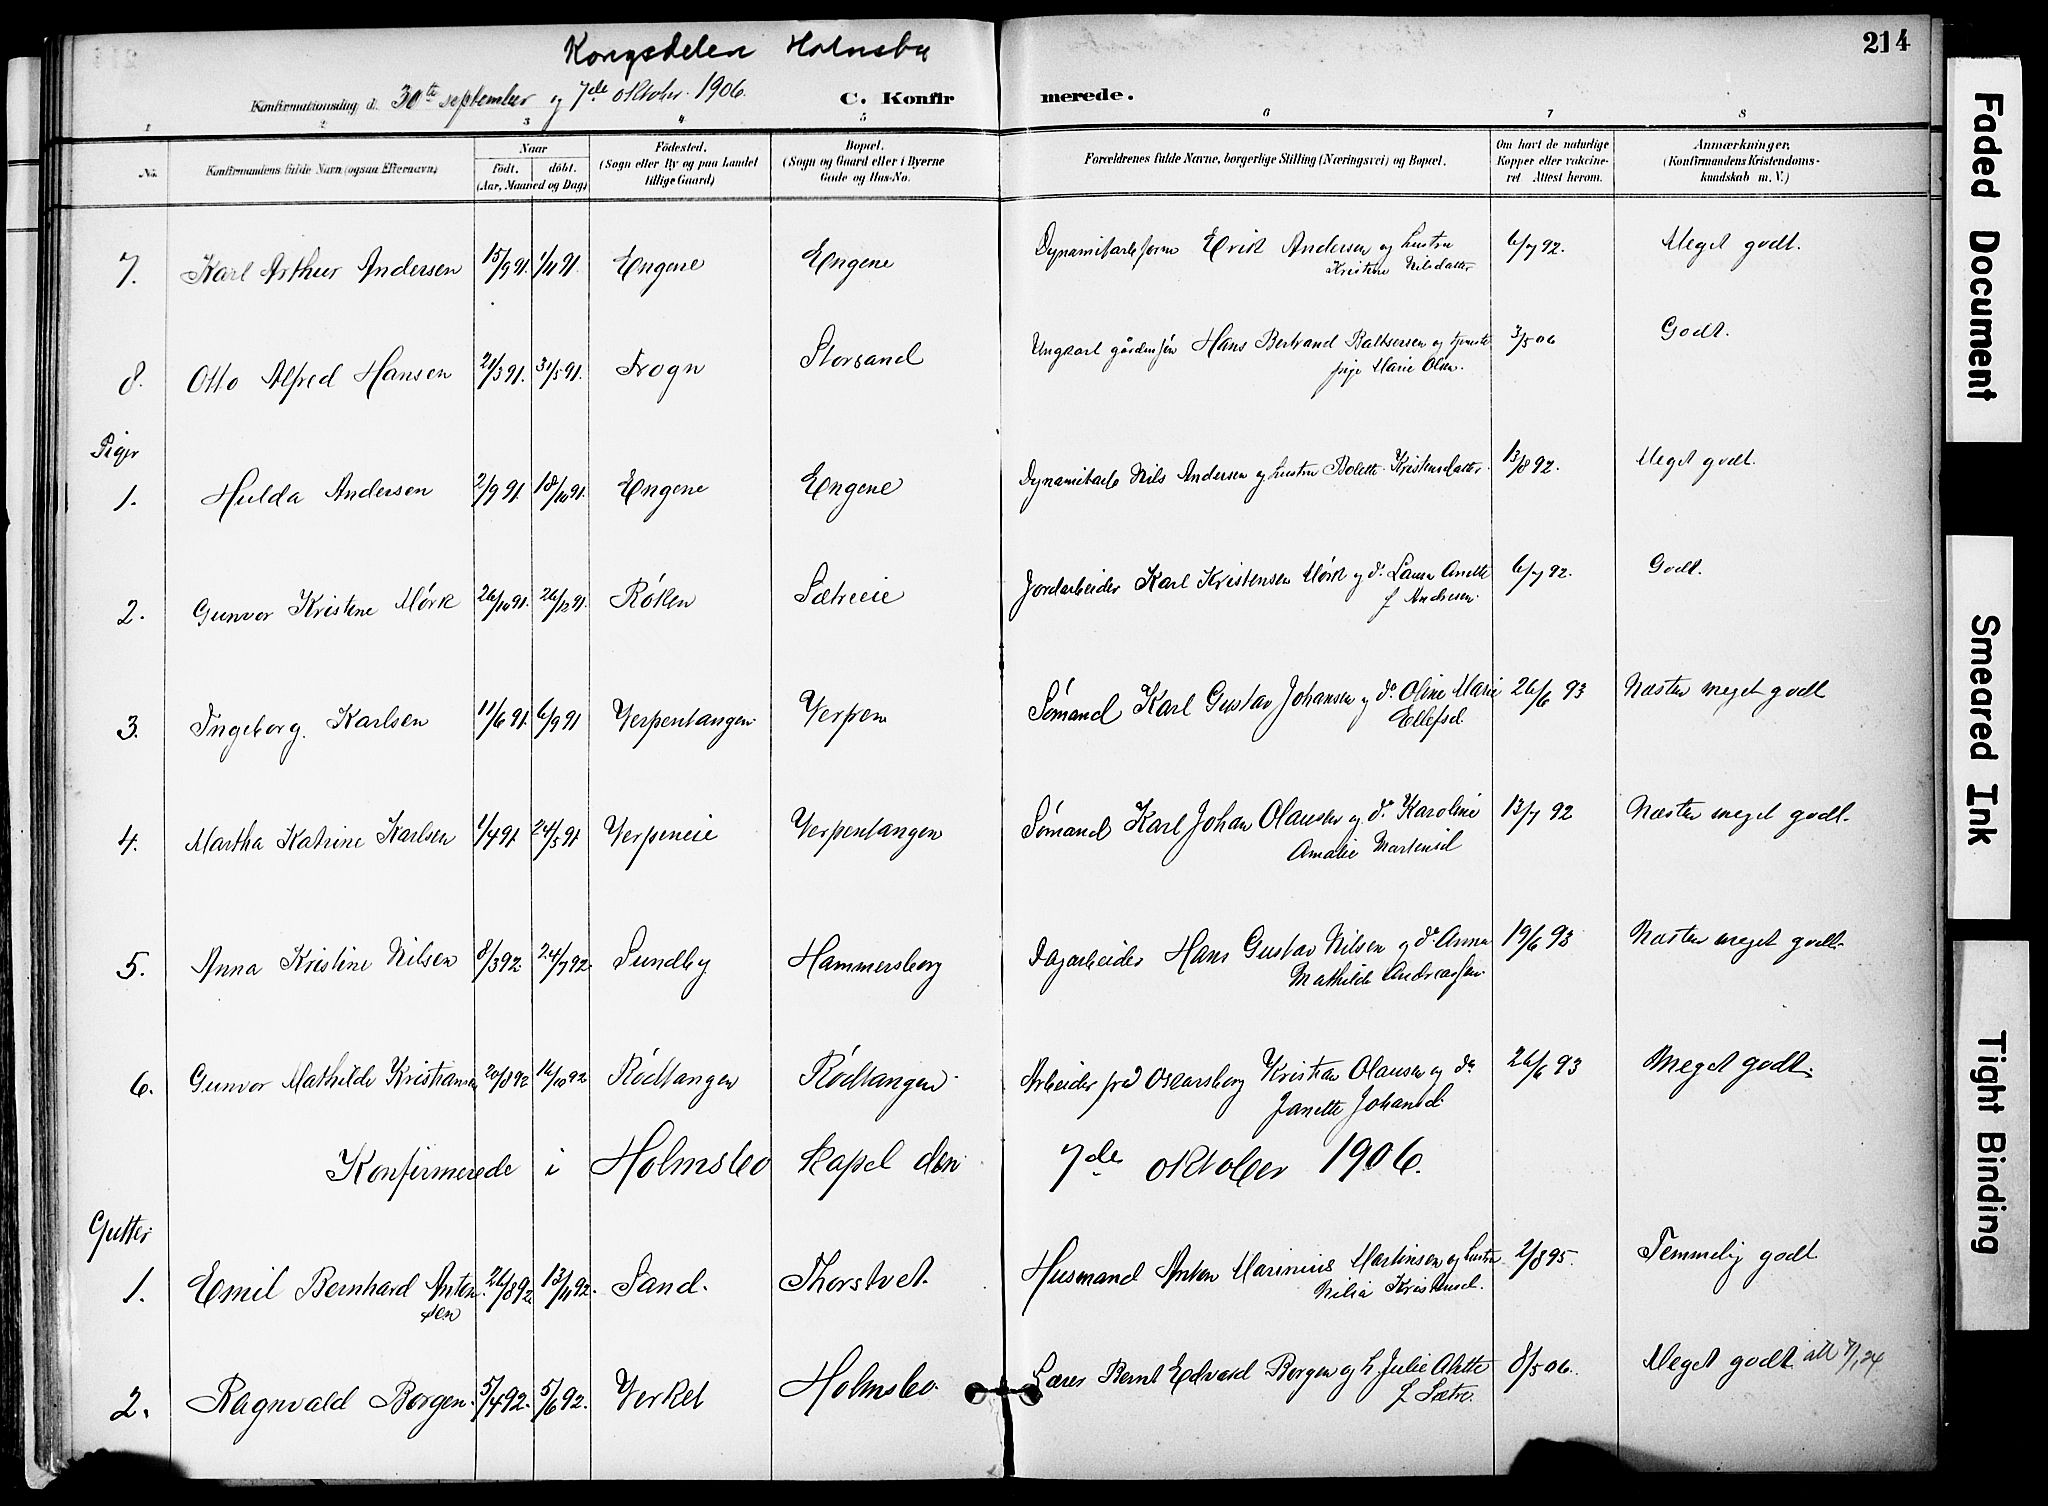 Kongsdelen Holmsbu
214
Konfirmationsdag d. 30te september og 7de oktober 1906.
C. Konfirmerede.
1 2 3 4 5 6 7 8
No. Konfirmandens fulde Navn (ogsaa Efternavn)
Naar født. døbt. (Aar, Maaned og Dag)
Fødested. (Sogn eller By og paa Landet tillige Gaard)
Bopæl. (Sogn og Gaard eller i Byerne Gade og Hus-No.
Forældrenes fulde Navne, borgerlige Stilling (Næringsvei) og Bopæl.
Om havt de naturlige Kopper eller vakcineret. Attest herom.
Anmærkninger. (Konfirmandens Kristendomskundskab m. V.)
7. Karl Arthur Andersen 15/9 91. 1/11 91. Engene Engene Erik Andersen og hustru Kristine Nilsdatter 6/7 92. Meget godt.
8. Otto Alfred Hansen 21/3 91. 31/5 91. Frogn Storsand Ungkarl gårdm søn Hans Bertrand og tjeneste pige Marie Olsen. 3/5 06 Godt.
Piger
1. Hulda Andersen 2/9 91 18/10 91. Engene Engene Dynamitarb Nils Andersen og hustru Bolette Kristensdatter. 13/8 92. Meget godt.
2. Gunvor Kristine Mørk 26/10 91. 26/12 91. Røken Sætreeie Jordarbeider Karl Kristensen Mørk og do. Laura Anette f Andersen. 6/7 92. Godt.
3. Ingeborg Karlsen 11/6 91. 6/9 91 Verpentangen Verpen Sømand Karl Gustav Johansen og do. Oline Marie Ellefsd. 26/6 93 Næsten meget godt
4. Martha Katrine Karlsen 1/4 91. 24/5 91 Verpeneie Verpentangen Sømand Karl Johan Olausen og do. Karoline Amalie Martinsd 13/7 92 Næsten meget godt.
5. Anna Kristine Nilsen 8/3 92. 24/7 92. Sundby Hammersborg Dagarbeider Hans Gustav Nilsen og do Anna Mathilde Andreassen. 19/6 93 Næsten meget godt.
6. Gunvor Mathilde Kristiansen 20/8 92 16/10 92 Rødtangen Rødtangen. Arbeider på Oscarsborg Kristian Olausen og do Janette Johansd. 26/6 93 Meget godt.
Konfirmerede i Holmsbo kapel den 7de oktober 1906.
Gutter
1. Emil Bernhard Antonsen 26/8 92. 13/11 92. Sand. Thorstvet. Husmand Anton Marinius Martinsen og hustru Nilia Kristensd. 2/8 95. Temmelig godt
2. Ragnvald Borgen. 5/4 92. 5/6 92. Verket Holmsbo. Lærer Bernt Edvard Borgen og h. Julie Alette f. Sætre. 8/5 06. Meget godt.
Faded Document
Smeared Ink
Tight Binding